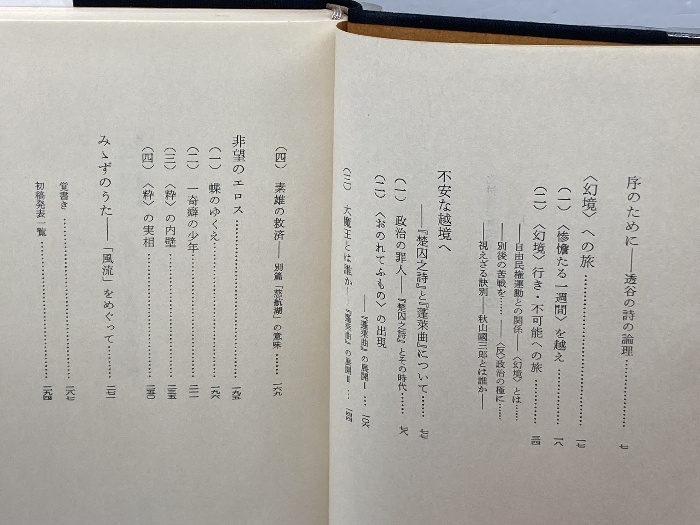 序のために——透谷の詩の論理…………七
〈幻境〉への旅…………一七
(一)〈惨憺たる一週間〉を越え……一八
(二)〈幻境〉行き・不可能への旅……三四
——自由民権運動との関係——〈幻境〉とは……
——別後の苦戦を……〈反〉政治の極に……
——視えざる訣別——秋山國三郎とは誰か——
不安な越境へ
——『楚囚之詩』と『蓬萊曲』について……七七
(一)政治の罪人——『楚囚之詩』とその時代……七八
(二)〈おのれてふもの〉の出現
——『蓬萊曲』の展開Ⅰ……一〇八
(三)大魔王とは誰か——『蓬萊曲』の展開Ⅱ……一四四
(四)素雄の救済——別篇「慈航湖」の意味……一六九
非望のエロス…………一九五
(一)蝶のゆくえ…………一九六
(二)一奇癖の少年…………二一一
(三)〈粋〉の内壁…………二三五
(四)〈粋〉の実相…………二五〇
みゝずのうた——「風流」をめぐって……二七一
覚書き…………二八七
初稿発表一覧…………二九四